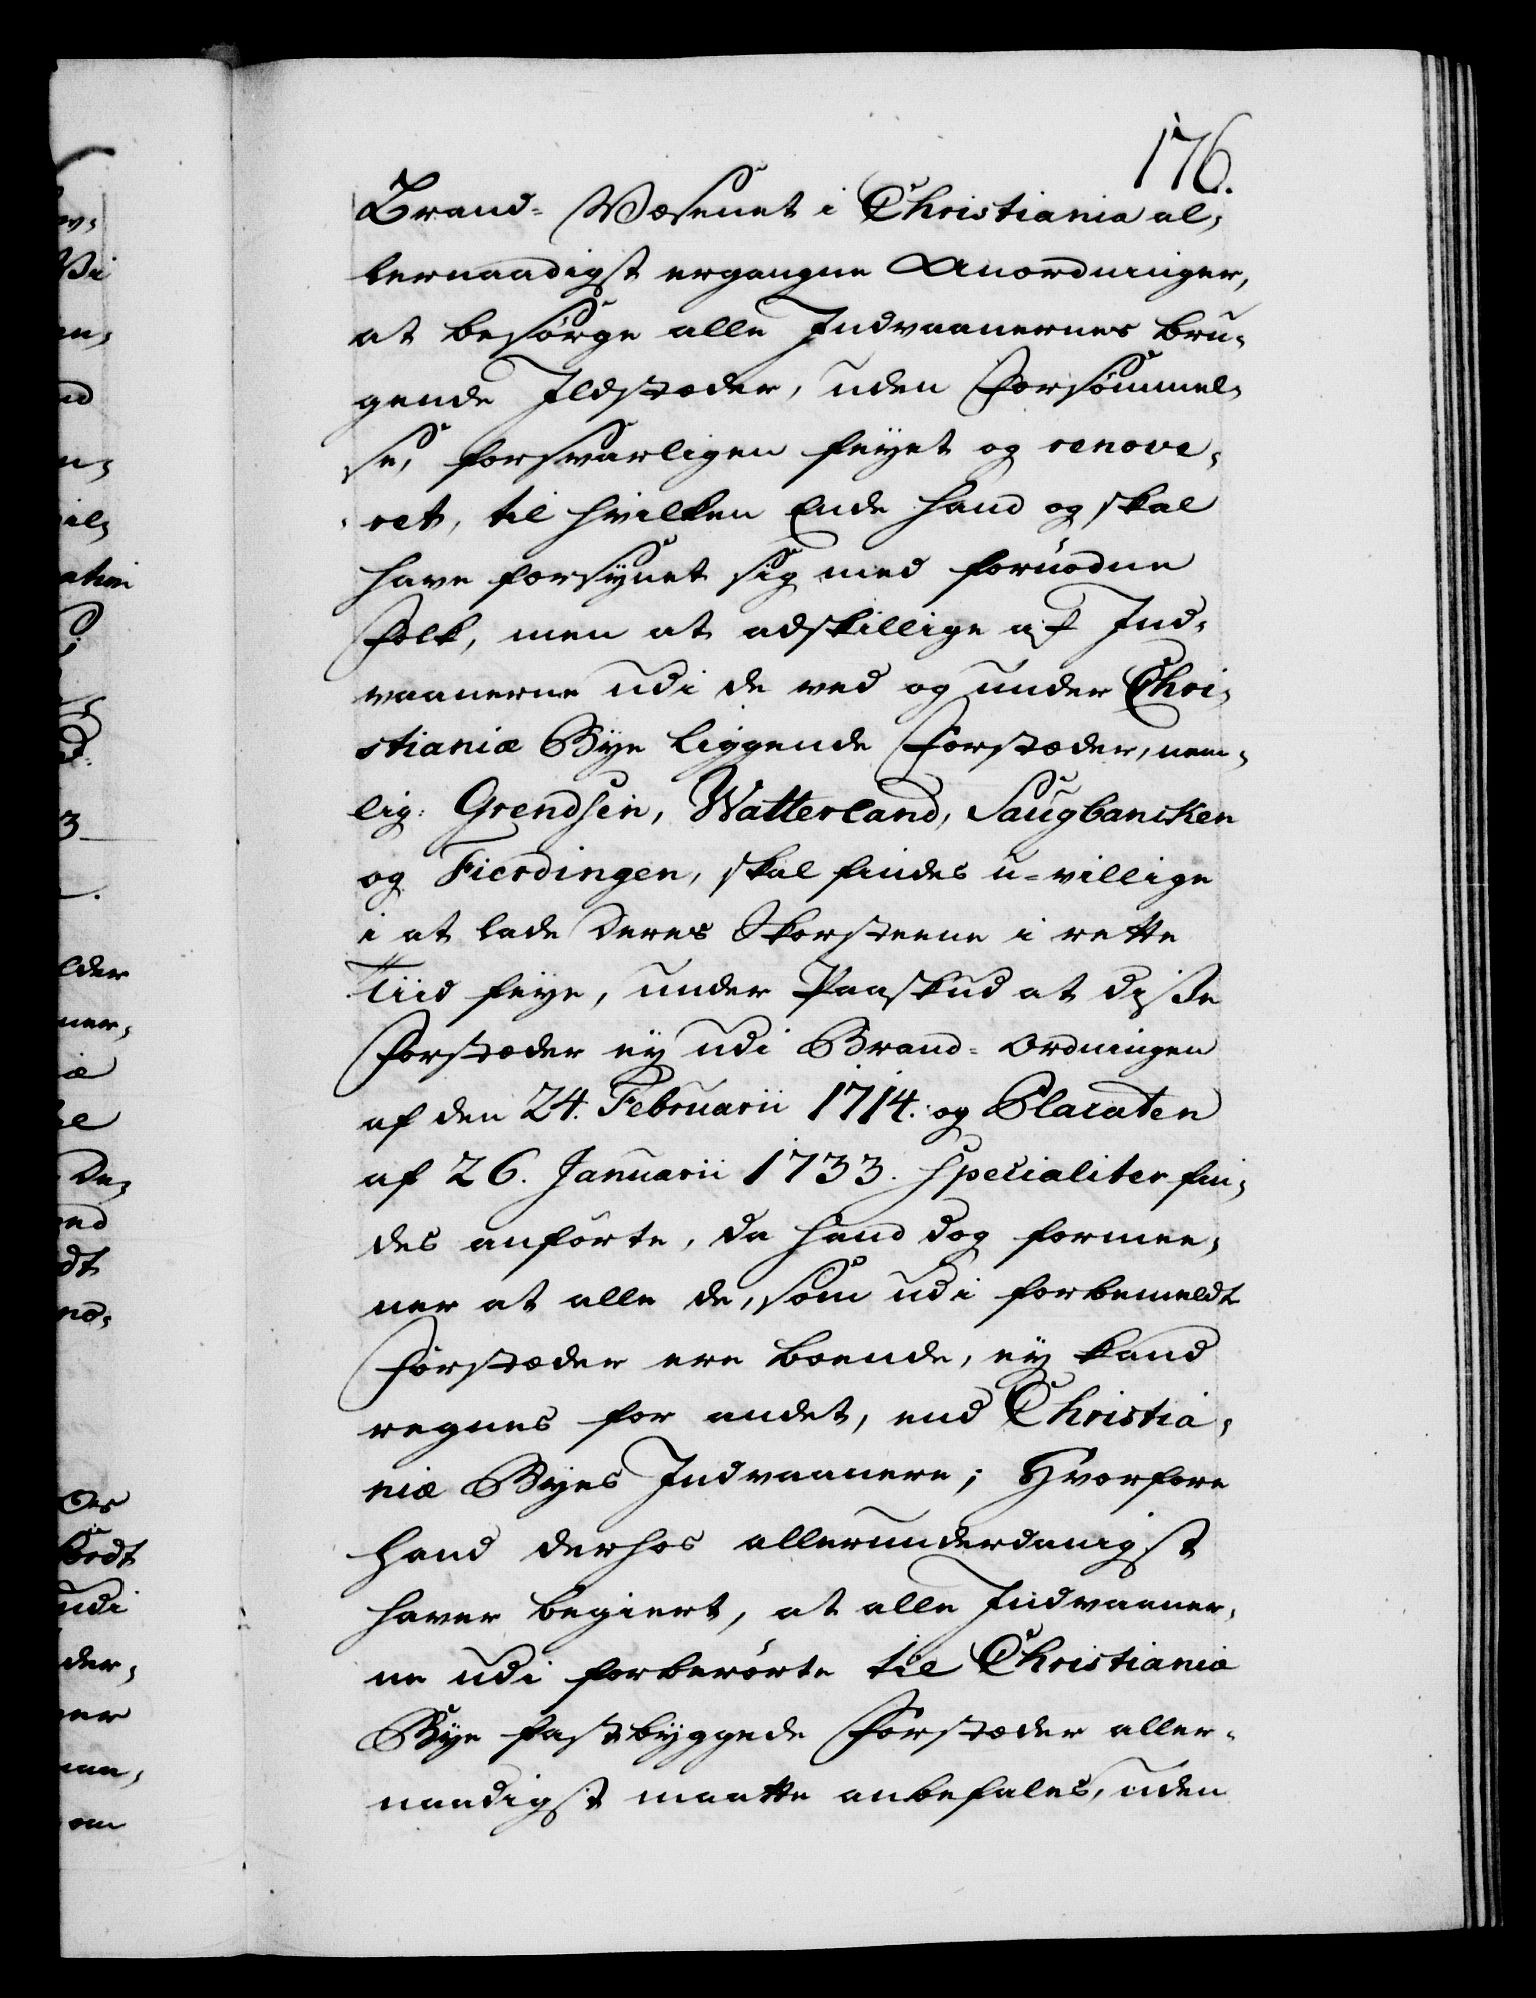 176.
Brand- Væsenet i Christiania al-
lernaadigst ergangne Anordninger,
at besörge alle Indvaanernes bru-
gende Ildstæder, uden Forsömmel-
se, forsvarligen feyet og renove-
ret, til hvilken Ende hand og skal
have forsynet sig med fornödne
Folk, men at adskillige af Ind-
vaanerne udi de ved og under Chri-
stianiæ Bye liggende Forstæder, nem-
lig: Grendsen, Watterland, Saugbancken
og Fierdingen, skal findes u-villige
i at lade deres Skorsteene i rette
Tiid feye, under Paaskud at disse
Forstæder ey udi Brand- Ordningen
af den 24. Februarii 1714. og Placaten
af 26. Januarii 1733. specialiter fin-
des anförte, da hand dog formee-
ner at alle de, som udi forbemeldt
Forstæder ere boende, ey kand
regnes for andet, end Christia-
niæ Byes Indvaanere; Hvorfore
hand derhos allerunderdanigst
haver begiert, at alle Indvaaner-
ne udi forberörte til Christiania
Bye fastbyggede Forstæder aller-
naadigst maatte anbefales, uden